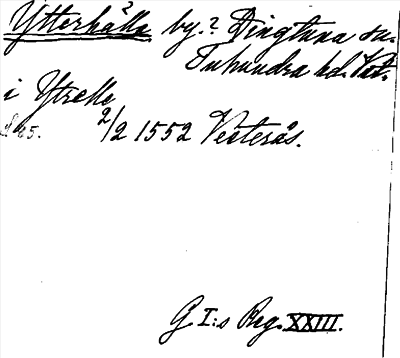 Ytterhälla by.? Dingtuna sn.
Tuhundra hd. Väst.
i Ytrelle
S. 25. 2/2 1552 Vesterås.
G. I:s Reg. XXIII.